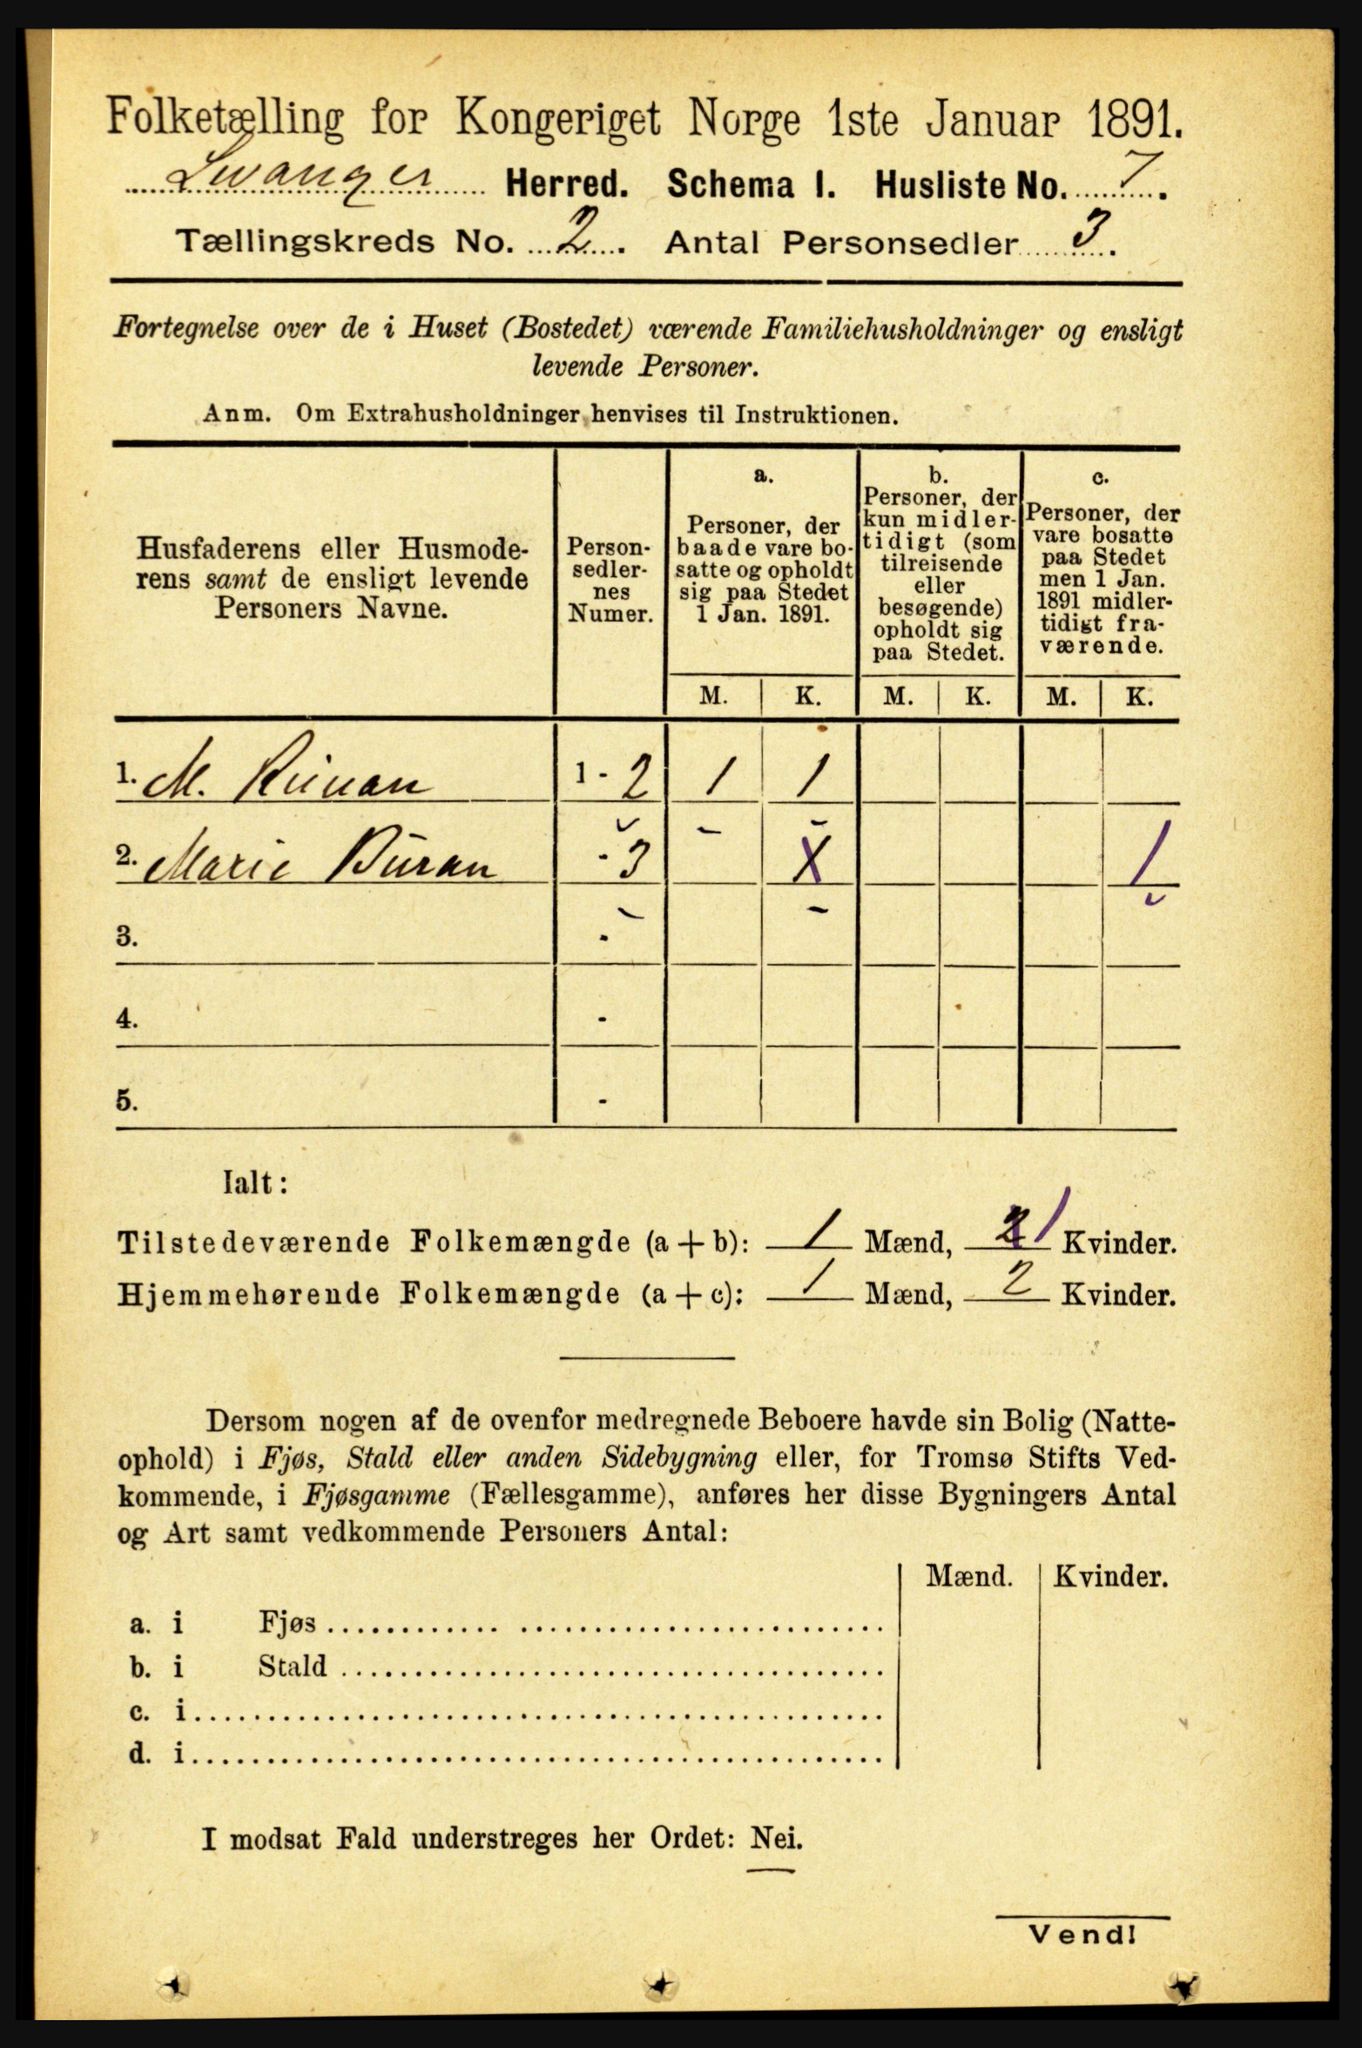 Folketælling for Kongeriget Norge 1ste Januar 1891.
Levanger Herred. Schema I. Husliste No. 7.
Tællingskreds No. 2. Antal Personsedler 3.
Fortegnelse over de i Huset (Bostedet) værende Familiehusholdninger og ensligt
levende Personer.
Anm. Om Extrahusholdninger henvises til Instruktionen.
Husfaderens eller Husmode-
rens samt de ensligt levende
Personers Navne.
Person-
sedler-
nes
Numer.
a.
Personer, der
baade vare bo-
satte og opholdt
sig paa Stedet
1 Jan. 1891.
b.
Personer, der
kun midler-
tidigt (som
tilreisende
eller
besøgende)
opholdt sig
paa Stedet.
c.
Personer, der
vare bosatte
paa Stedet
men 1 Jan.
1891 midler-
tidigt fra-
værende.
M. K. M. K. M. K.
1. M. 1 - 2 1 1
2. Marie Buran - 3 X 1
3. -
4. -
5. -
Ialt:
Tilstedeværende Folkemængde (a + b): 1 Mænd, 2 1 Kvinder.
Hjemmehørende Folkemængde (a + c): 1 Mænd, 2 Kvinder.
Dersom nogen af de ovenfor medregnede Beboere havde sin Bolig (Natte-
ophold) i Fjøs, Stald eller anden Sidebygning eller, for Tromsø Stifts Ved-
kommende, i Fjøsgamme (Fællesgamme), anføres her disse Bygningers Antal
og Art samt vedkommende Personers Antal:
Mænd. Kvinder.
a. i Fjøs
b. i Stald
c. i
d. i
I modsat Fald understreges her Ordet: Nei.
Vend!